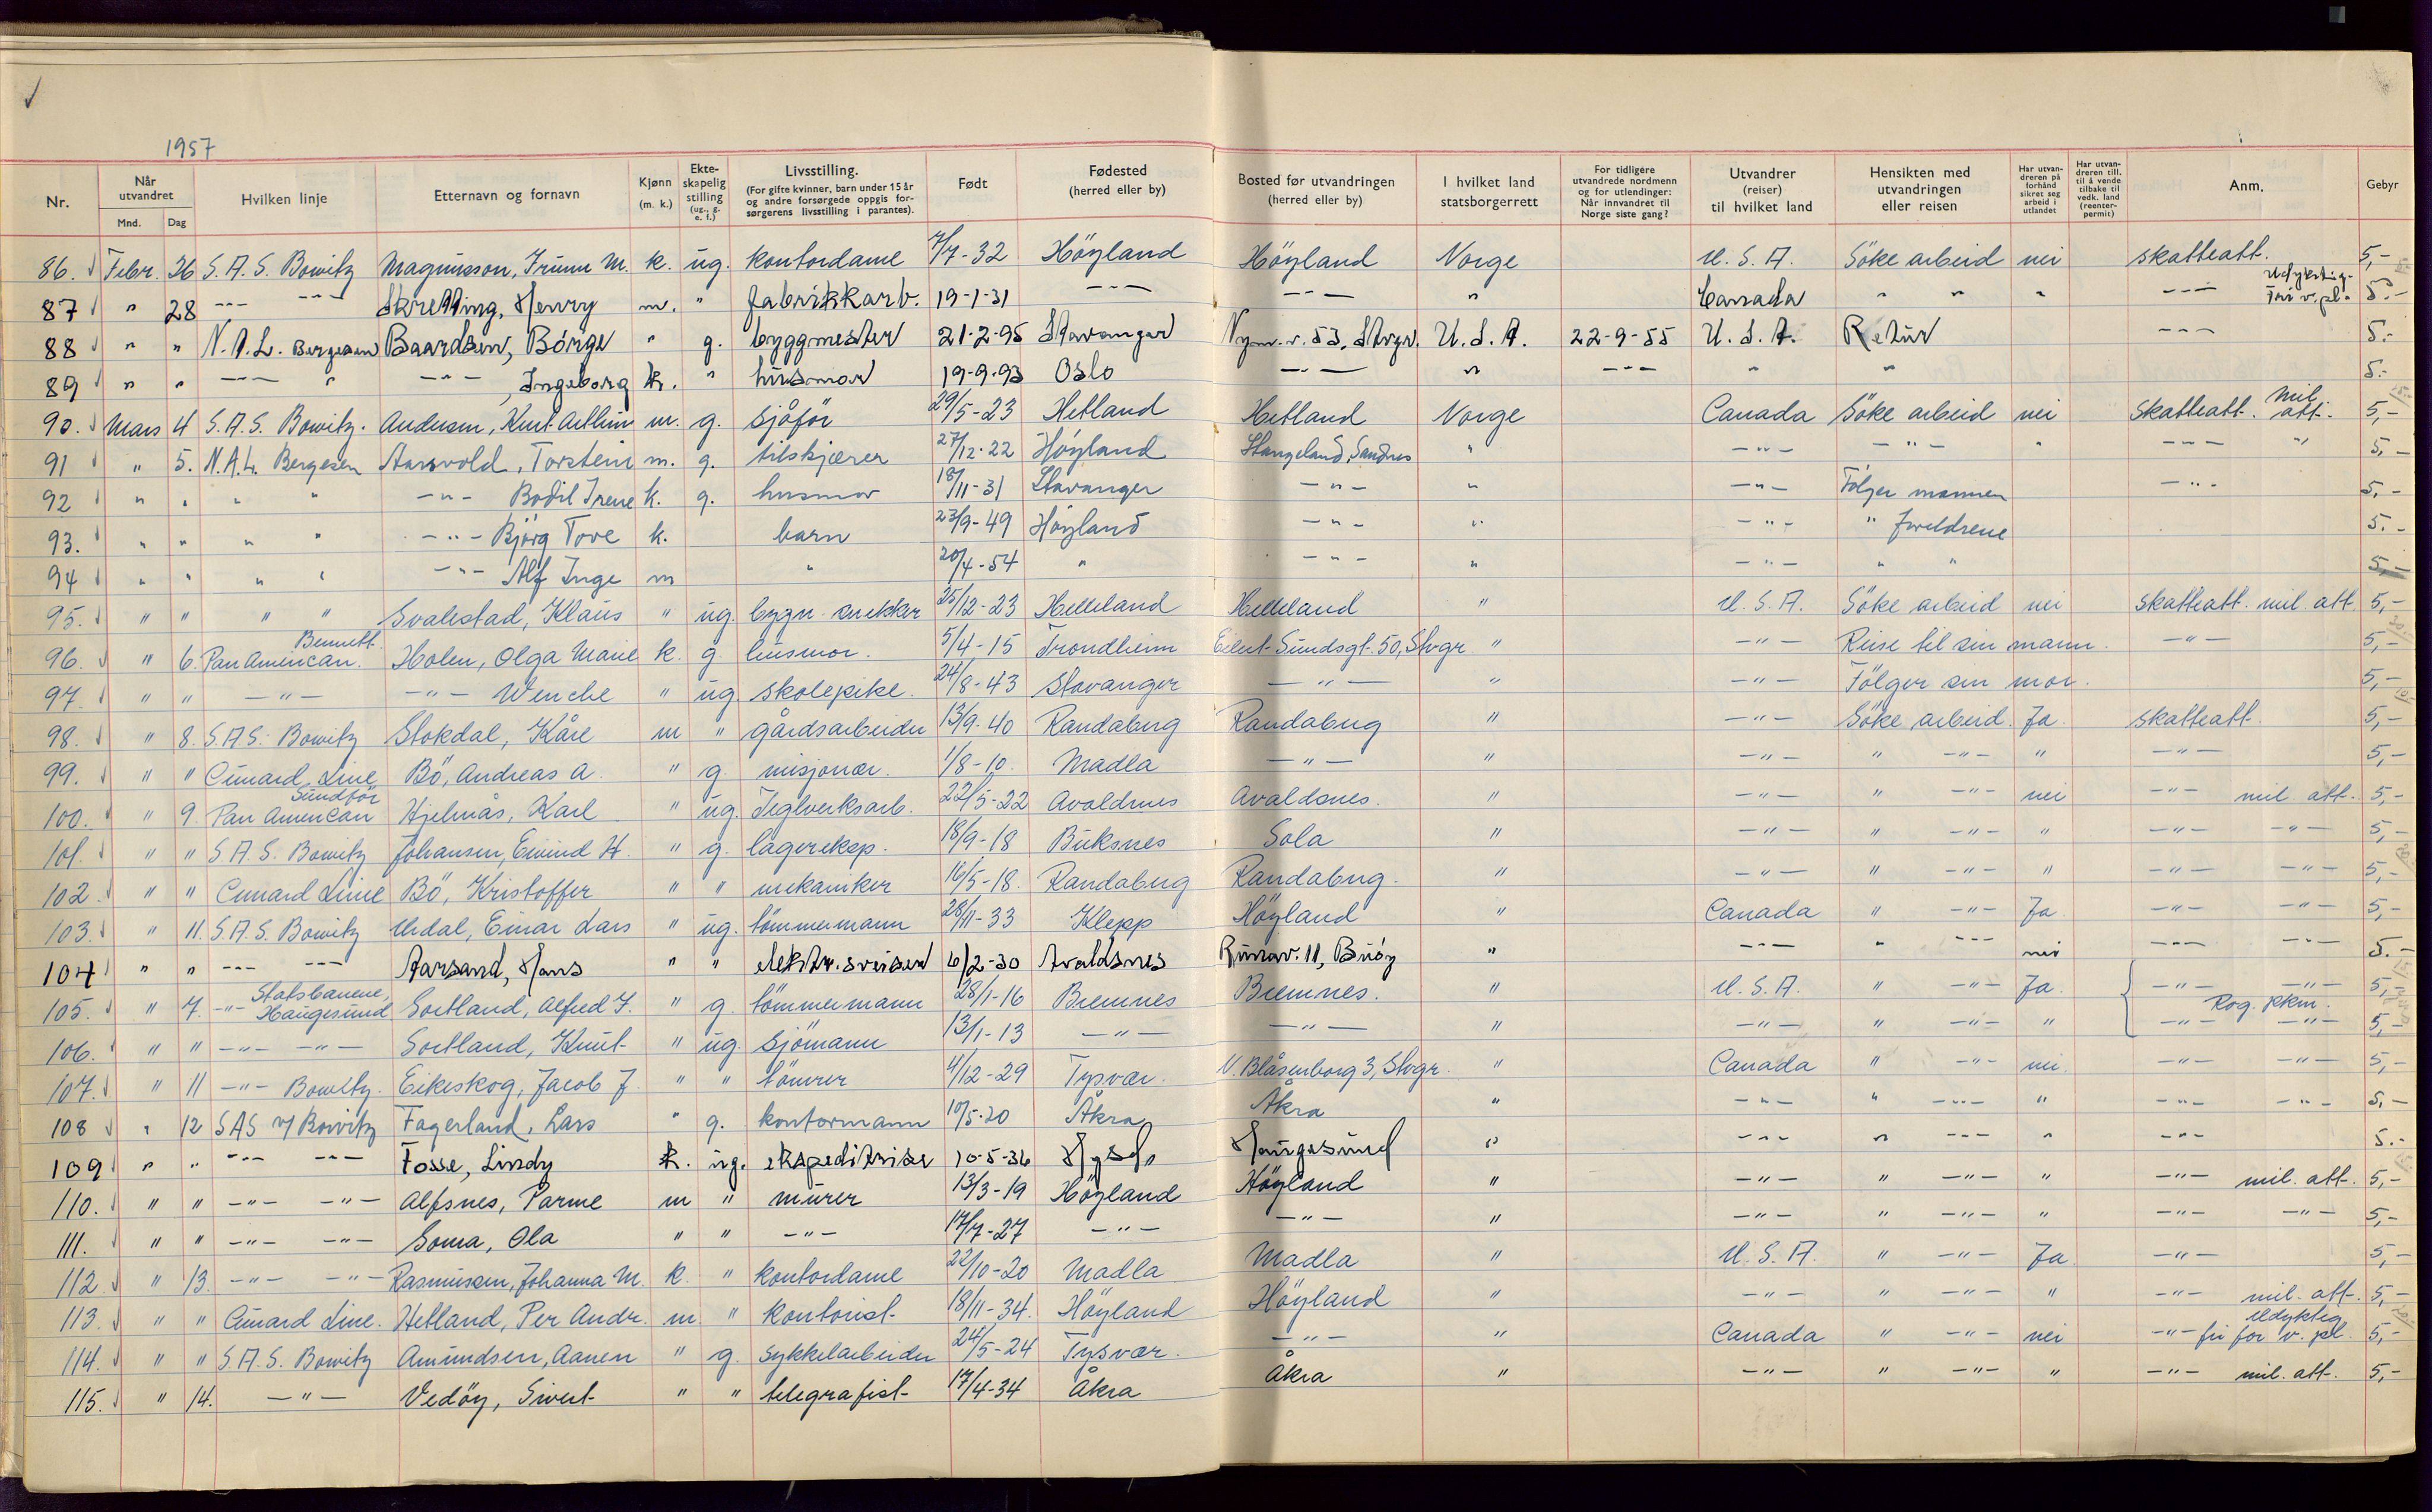 1957
Nr. Når utvandret Mnd. Dag Hvilken linje Etternavn og fornavn Kjønn (m. k.) Ekteskapelig stilling (ug., g. e. f.) Livsstilling. (For gifte kvinner, barn under 15 år og andre forsørgede oppgis forsørgerens livsstilling i parantes). Født Fødested (herred eller by) Bosted før utvandringen (herred eller by) I hvilket land statsborgerrett For tidligere utvandrede nordmenn og for utlendinger: Når innvandret til Norge siste gang? Utvandrer (reiser) til hvilket land Hensikten med utvandringen eller reisen Har utvandreren på forhånd sikret seg arbeid i utlandet Har utvandreren till. til å vende tilbake til vedk. land (reenterpermit) Anm. Gebyr
86. Febr. 26 S.A.S. Bowitz Magnusson, Trunn M. k. ug. kontordame 7/7-32 Höyland Höyland Norge U.S.A. Söke arbeid nei skatteatt. 5,-
87 " 28 -"- -"- Skretting, Henry m. " fabrikkarb. 19-1-31 -"- -"- " Canada " " " -"- Udyktig- for v. pl. 5.-
88 " " N.A.L. Bergesen Baardsen, Börge " g. byggmester 21-2-95 Stavanger Nym.v. 53, Stvgr. U.S.A. 22-9-55 U.S.A. Retur -"- 5.-
89 " " -"- " -"- , Ingeborg k. " husmor 19-9-93 Oslo -"- " -"- " " 5.-
90. Mars 4 S.A.S. Bowitz. Andersen, Knut Arthur m. g. sjåför 29/5-23 Hetland Hetland Norge Canada Söke arbeid nei skatteatt. mil. att. 5,-
91 " 5. N.A.L. Bergesen Aarsvold, Torstein m. g. tilskjærer 27/12-22 Höyland Stangeland, Sandnes " -"- -"- " -"- " 5,-
92 " " " " -"- Bodil Irene k. g. husmor 18/11-31 Stavanger -"- " -"- Fölger mannen -"- 5,-
93. " " " " -"- Björg Tove k. barn 23/9-49 Höyland -"- " -"- " foreldrene 5.-
94 " " " " -"- Alf Inge m " 20/4-54 " -"- " -"- " " 5,-
95. " " " " Svalestad, Klaus " ug. bygn. snekker 25/12-23 Helleland Helleland " U.S.A. Söke arbeid nei skatteatt. mil. att. 5,-
96. " 6. Pan American. Bennett Holen, Olga Marie k. g. husmor. 5/4-15 Trondheim Eilert Sundsgt. 50, Stvgr. " -"- Reise til sin mann. -"- 5,-
97. " " -"- -"- Wenche " ug. skolepike. 24/8-43 Stavanger -"- " -"- Fölger sin mor. 5,-
98. " 8. S.A.S. Bowitz Stokdal, Kåre m " gårdsarbeider 13/9-40 Randaberg Randaberg " -"- Söke arbeid. Ja skatteatt. 5,-
99. " " Cunard Line Bö, Andreas A. " g. misjonær. 1/8-10. Madla -"- " -"- " -"- " -"- 5,-
100. " 9. Pan American Sundför Hjelmås, Karl " ug. Teglverksarb. 22/5-22 Avaldsnes Avaldsnes. " -"- " -"- nei -"- mil. att. 5,-
101. " " S.A.S. Bowitz Johansen, Eivind H. " g. lagereksp. 18/9-18 Buksnes Sola " -"- " -"- " -"- -"- 5,-
102. " " Cunard Line Bö, Kristoffer " " mekaniker 16/5-18. Randaberg Randaberg. " -"- " -"- " -"- -"- 5,-
103. " 11. S.A.S. Bowitz Urdal, Einar Lars " ug. tömmermann 28/11-33 Klepp Höyland " Canada " -"- Ja -"- -"- 5,-
104 " " -"- -"- Aarsand, Hans " " elektr. sveiser 6/2-30 Avaldsnes Runav. 11, Buöy " -"- " -"- nei -"- -"- 5.-
105. " 7. -"- Statsbanene, Haugesund Sortland, Alfred J. " g. tömmermann 28/1-16 Bremnes Bremnes. " U.S.A. " -"- Ja -"- -"- 5,-
Rog. pkm.
106. " " -"- -"- Sortland, Knut " ug. sjömann 13/1-13 -"- -"- " -"- " -"- " -"- -"- 5,-
107. " 11 -"- Bowitz. Eikeskog, Jacob J. " " tömrer 4/12-29 Tysvær. N. Blåsenborg 3, Stvgr. " Canada " -"- nei. -"- -"- 5,-
108 " 12 SAS v/ Bowitz Fagerland, Lars " g. kontormann 10/5-20 Åkra Åkra " -"- " -"- " -"- -"- 5,-
109 " " -"- -"- Fosse, Lindy k. ug. ekspeditrise 10-5-36 Haugesund " -"- " -"- " -"- 5.-
110. " " -"- -"- Alfsnes, Parme m " murer 13/3-19 Höyland Höyland " -"- " -"- " -"- mil. att. 5,-
111. " " -"- -"- Soma, Ola " " -"- 17/7-27 -"- -"- " -"- " -"- " -"- -"- 5,-
112. " 13. -"- -"- Rasmussen, Johanna M. k. " kontordame 22/10-20 Madla Madla " U.S.A. " -"- Ja -"- 5,-
113. " " Cunard Line. Hetland, Per Andr. m. " kontorist 18/11-34. Höyland Höyland " -"- " -"- " -"- mil. att. 5,-
114. " " S.A.S. Bowitz Amundsen, Aanen " g. sykkelarbeider 24/5-24 Tysvær. -"- " Canada " -"- nei -"- Udyktig fri for v. pl. 5,-
115. " 14. -"- Vedöy, Sivert " " telegrafist 17/4-34 Åkra Åkra " -"- " -"- " -"- mil. att. 5,-